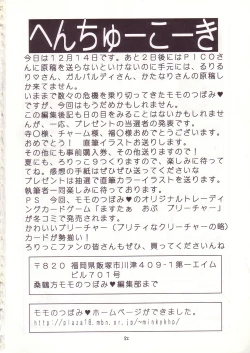 へんちゅーこーき
今日は12月14日です。あと2日後にはPICOさ
んに原稿を送らないといけないのに手元には、るり
るり♡さん、ガルバルディさん、かたなりさんの原稿し
か来てません。
いままで数々の危機を乗り切ってきたモモのつぼみ♥
ですが、今回はもうだめかもしれません。
この編集後記も日の目をみることはないかもしれませ
んが、一応、プレゼントの当選者の発表です。
寺○様、チャーム様、福○様おめでとうございます。
おめでとう! 直筆イラストお送りします。
その他にも事前購入券、その他送りますので!
夏にも、ろりっこ9つくりますので、楽しみに待って
てね。感想の手紙はぜひぜひ送ってくださいな
プレゼントは抽選で直筆カラーイラストを送ります。
執筆者一同楽しみに待ってます。
PS 今回、モモのつぼみ♥のオリジナルトレーディ
ングカードゲーム「ますたぁ おぶ プリーチャー」
が冬コミで発売されます。
かわいいプリーチャー(プリティなクリーチャーの略)
カードが勢揃い!
ろりっこファンの皆さんもぜひ、買ってくださいんね
〒820 福岡県飯塚市川津409-1第一エイム
ビル701号
桑鶴方モモのつぼみ♥編集部まで
モモのつぼみ♥ホームページができました。
http://plaza18.mbn.or.jp/~minkykho/